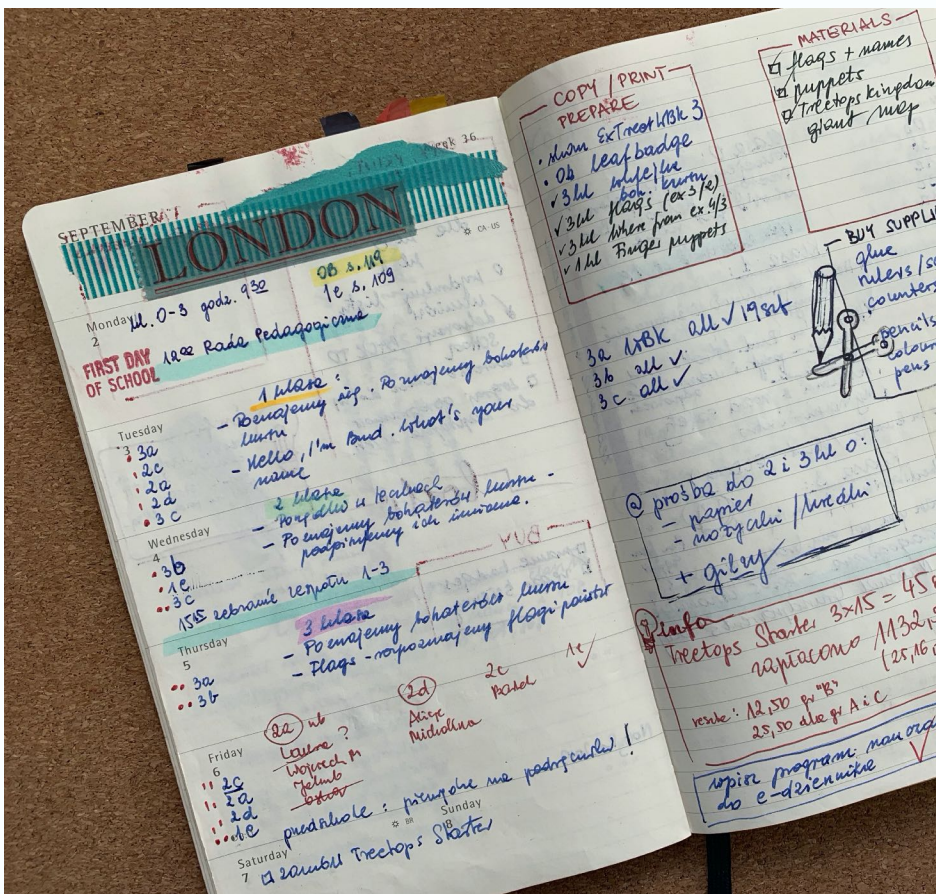 Week 36
SEPTEMBER
LONDON
CA·US
OB s. 119
1e s. 109
Monday kl. 0-3 godz. 9 30
2
12 00 Rada Pedagogiczna
FIRST DAY
OF SCHOOL
1 klasa:
- Poznajemy się. Poznajemy bohaterów
kursu
- Hello, I'm Bud. What's your
name
Tuesday
3
3a
2c
2a
2d
3c
2 klasa
- Poznajemy bohaterów kursu -
podpisujemy ich imiona.
Wednesday
4
3b
1e
3c
15 15 zebranie zespołu 1-3
3 klasa
- Poznajemy bohaterów kursu
- Flags - rozpoznajemy flagi państw
Thursday
5
3a
3b
2a
Laura ?
Wojciech M
2d
Alicja
Michalina
2c
1e ✓
Friday
6
2c
2a
2d
1e
przedszkole: pieniądze na podręczniki!
BR
Sunday
8
Saturday
7
zamów Treetops Starter
COPY / PRINT
PREPARE
OB leaf badge
✓ 3 kl flags (ex 3/2)
✓ 3 kl where from ex. 4/3
✓ 1 kl Finger puppets
MATERIALS
flags + names
puppets
Treetops kingdom
giant map
BUY SUPPLI
glue
rulers/sc
counters
pencils
colour
pens
3a WBk all ✓ 19szt
3b all ✓
3c all ✓
@ prośba do 2 i 3 kl o:
- papier
- nożyczki / kredki
+ gilzy
info
Treetops Starter 3x15 = 45
zapłacono 1132,
(25,16
reszta: 12,50 gr "B"
25,50 dla gr A i C
wpisz program nauczania
do e-dziennika ✓